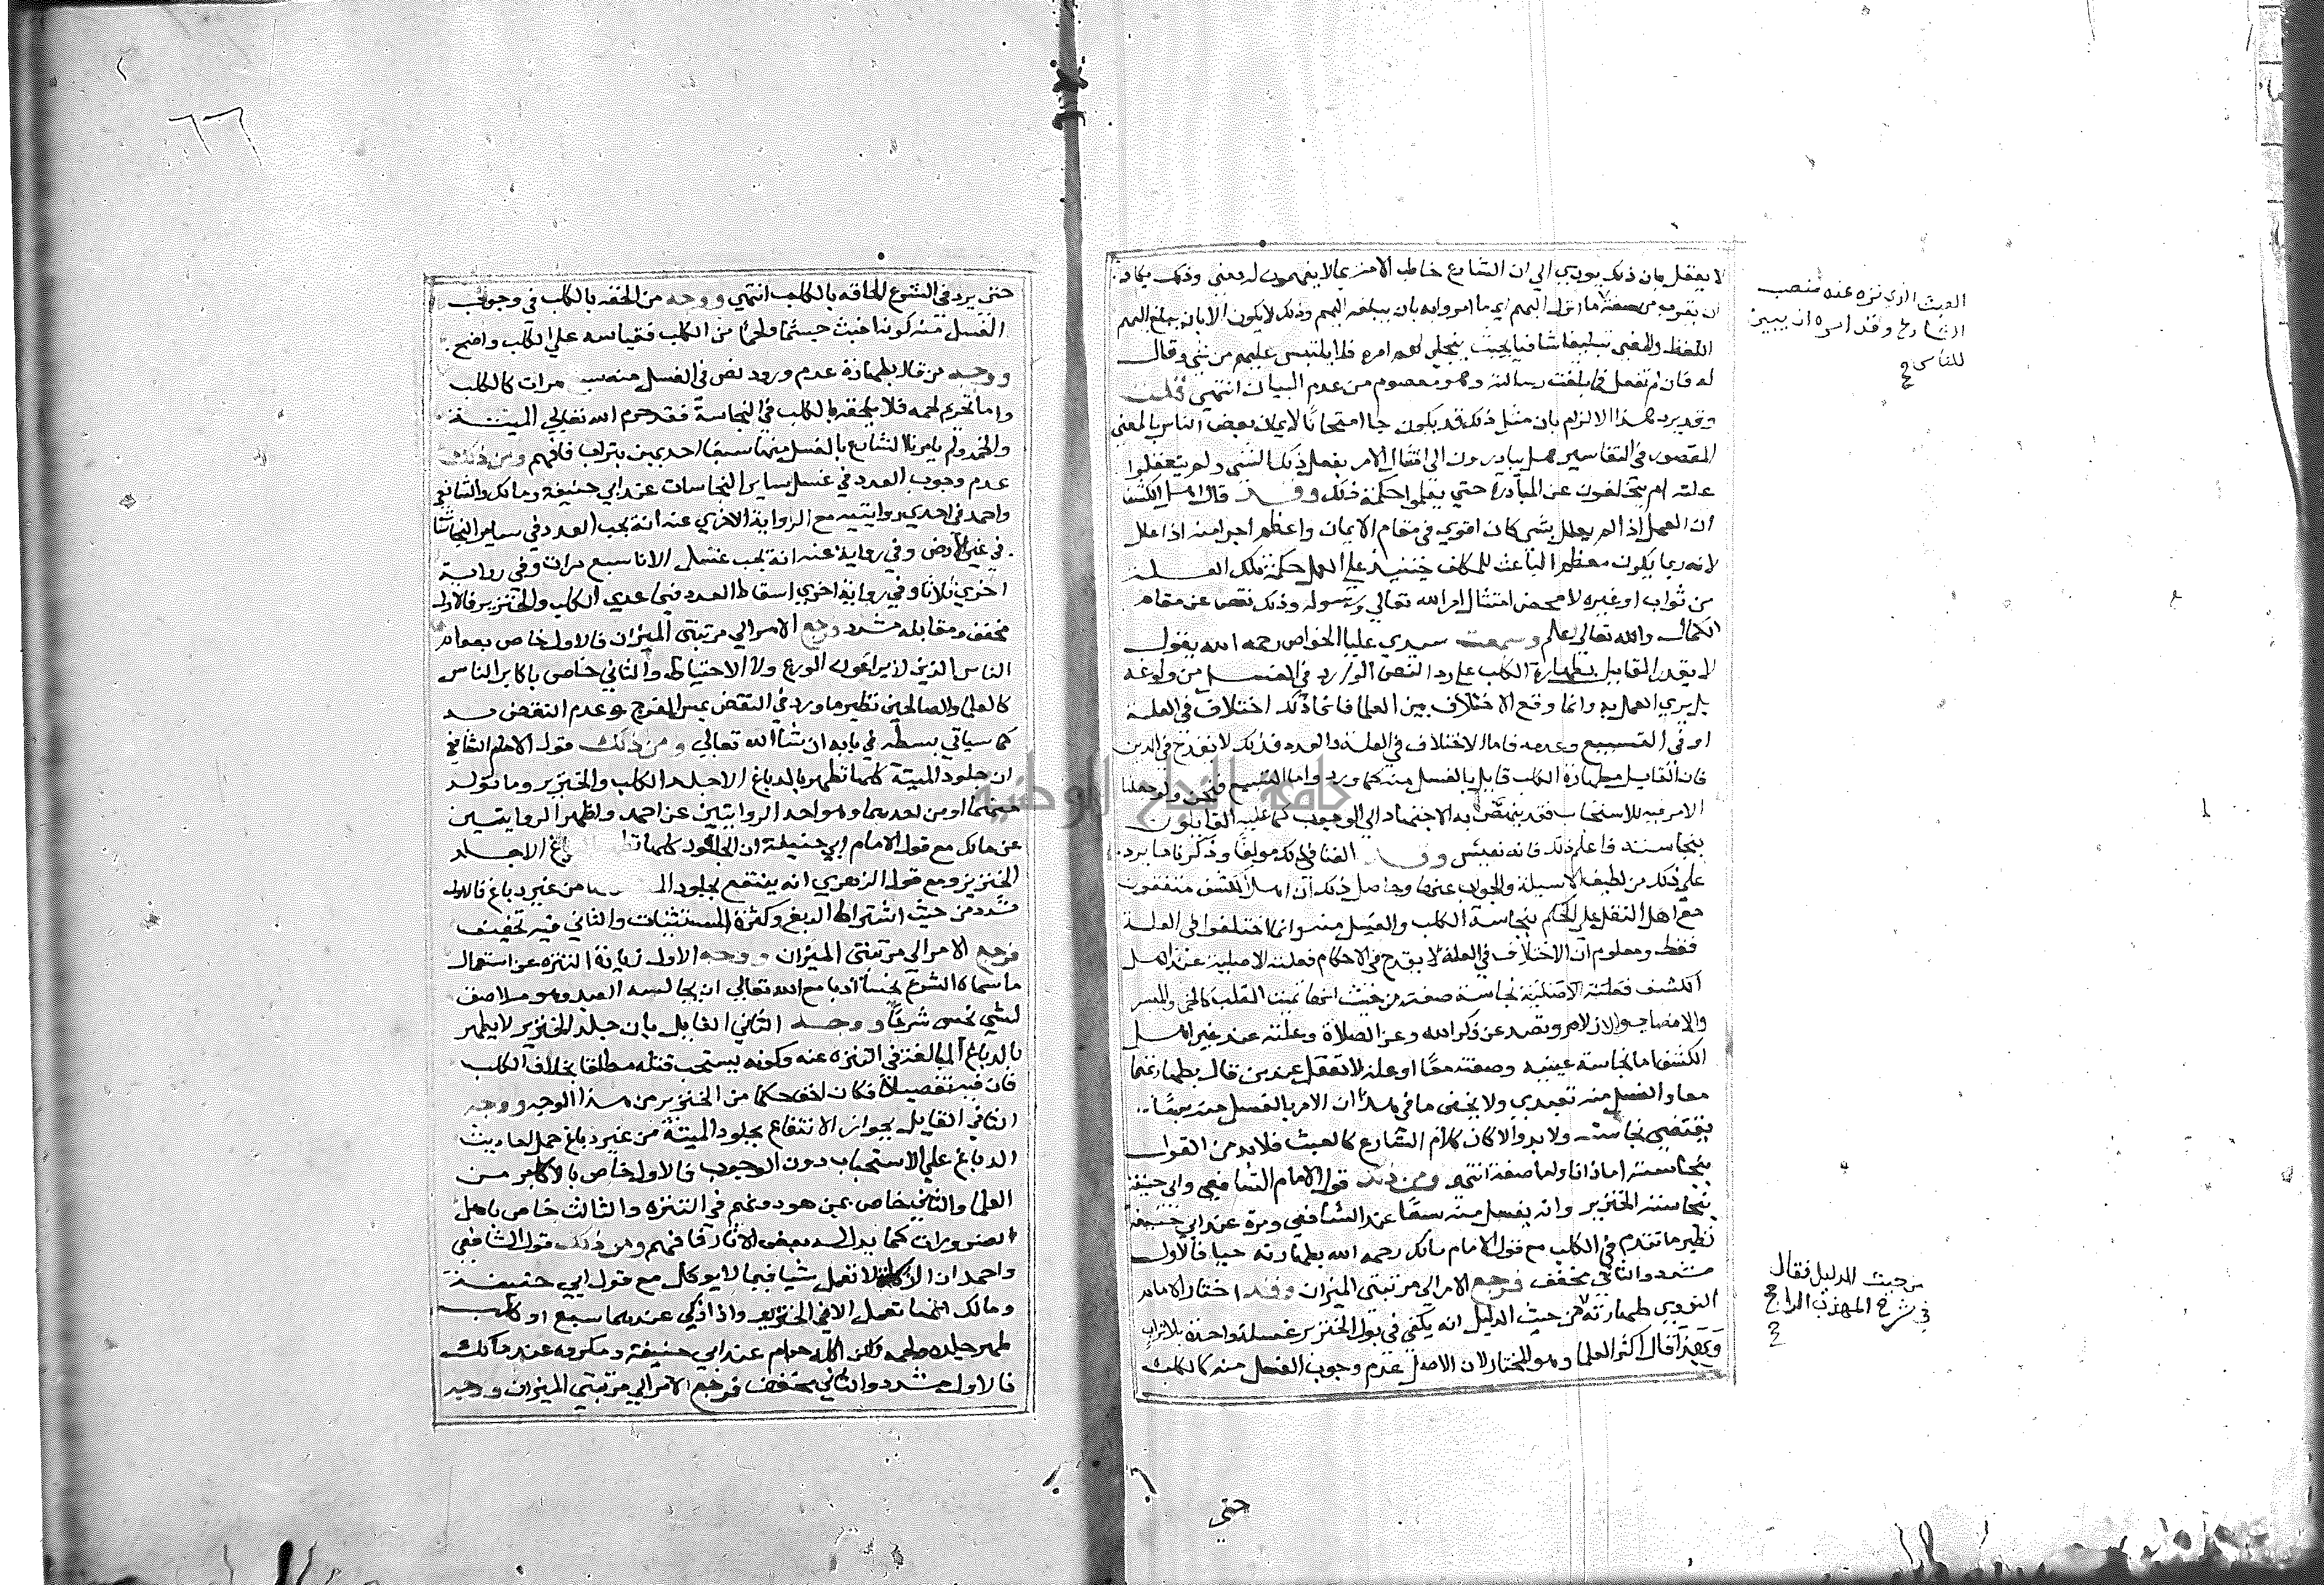 لا يعقل بان ذلك يودي الي ان الشارع خاطب الامة بما لا يفهمون له معنى وذلك يكاد
ان يقرب من صفة ما انزل اليهم اي ما امروا به بان يبلغه اليهم وذلك لا يكون الا بان يبلغ اليهم
اللفظ والمعنى تبليغا شافيا بحيث ينجلي لهم امره فلا يلتبس عليهم من شي وقال
له فان لم تفعل فما بلغت رسالته وهو معصوم من عدم البيان انتهى قلت
وقد يرد هذا الالزام بان مثل ذلك قد يكون جا امتحانا لايمان بعض الناس بالمعنى
المقصور في التفاسير هل يبادرون الى امتثال الامر بفعل ذلك الشي ولو لم يتعقلوا
علته ام يتخلفون عن المبادرة حتي يعلموا حكمة ذلك وقد قال اهل الكشف
ان العمل اذا لم يعلل بشي كان اقوي في مقام الايمان واعظم اجرا منه اذا علل
لانه ربما يكون معظم الباعث للمكلف حينئذ علي العمل حكمة تلك العلة
من ثواب او غيره لا محض امتثال امر الله تعالي ورسوله وذلك نقص عن مقام
الكمال والله تعالي اعلم وسمعت سيدي عليا الخواص رحمه الله يقول
لا يقدر القايل بطهارة الكلب على رد النص الوارد في الغسل من ولوغه
بل يري العمل به وانما وقع الاختلاف بين العلما فانما ذلك اختلاف في العلة
او في التسبيع وعدمه فاما الاختلاف في العلة والعدد فذلك لا يقدح في الدين
فان القايل بطهارة الكلب قايل بالغسل منه كما ورد واما التسبيع فنحن ولو جعلنا
الامر فيه للاستحباب فقد ينهض به الاجتهاد الي الوجوب كما عليه القايلون
بنجاسته فاعلم ذلك فانه نفيس وقد الفنا في ذلك مولفا وذكرنا ما يرد
علي ذلك من لطيف الاسيلة والجواب عنها وحاصل ذلك ان اهل الكشف متفقون
مع اهل النقل على الحكم بنجاسة الكلب والغسل منه وانما اختلفوا في العلة
فقط ومعلوم ان الاختلاف في العلة لا يقدح في الاحكام فعلته الاصلية عند اهل
الكشف فعلته الاصلية نجاسة صفته من حيث انها تميت القلب كالخمر والميسر
والانصاب والازلام وتصد عن ذكر الله وعن الصلاة وعلته عند غير اهل
الكشف اما نجاسة عينيه وصفته معا او علة لا تعقل عند من قال بطهارتهما
معا والغسل منه تعبدي ولا يخفى ما في هذا ان الامر بالغسل منه سبعا
يقتضي نجاسته ولا بد والا كان كلام الشارع كالعبث فلا بد من القول
بنجاسته اما ذاتا واما صفة انتهى ومن ذلك قول الامام الشافعي وابي حنيفة
بنجاسة الخنزير وانه يغسل منه سبعا عند الشافعي ومرة عند ابي حنيفة
نظير ما تقدم في الكلب مع قول الامام مالك رحمه الله بطهارته حيا فالاول
مشدد والثاني مخفف فرجع الامر الى مرتبتي الميزان وقد اختار الامام
النووي طهارته من حيث الدليل انه يكفي في بول الخنزير غسلة واحدة بلا تراب
وبهذا قال اكثر العلما وهو المختار لان الاصل عدم وجوب الغسل منه كالكلب
حتي
العبث الذي نزه عنه منصب
الشارع وقد امره ان يبين
للناس
من حيث الدليل فقال
في شرح المهذب الراجح
حتى يرد في الشرع الحاقه بالكلب انتهي ووجه من الحقه بالكلب في وجوب
الغسل منه كونه اخبث جسما ولحما من الكلب فقياسه علي الكلب واضح
ووجه من قال بطهارته عدم ورود نص في الغسل منه سبع مرات كالكلب
واما تحريم لحمه فلا يلحقه بالكلب في النجاسة فقد حرم الله تعالي الميتة
والخمر ولم يامرنا الشارع بالغسل منهما سبعا احديهن بتراب فافهم ومن ذلك
عدم وجوب العدد في غسل ساير النجاسات عند ابي حنيفة ومالك والشافعي
واحمد في احدي روايتيه مع الرواية الاخري عنه انه يجب العدد في ساير النجاسات
في غير الارض وفي رواية عنه انه يجب غسل الانا سبع مرات وفي رواية
اخري ثلاثا وفي رواية اخري اسقاط العدد فيما عدي الكلب والخنزير فالاول
مخفف ومقابله مشدد ورجع الامر الي مرتبتي الميزان فالاول خاص بعوام
الناس الذين لا يراعون الورع ولا الاحتياط والثاني خاص باكابر الناس
كالعلما والصالحين نظير ما ورد في النقض بمس الفرج وعدم النقض به
كما سياتي بسطه في بابه ان شا الله تعالي ومن ذلك قول الامام الشافعي
ان جلود الميتة كلها تطهر بالدباغ الا جلد الكلب والخنزير وما تولد
منهما او من احدهما وهو احد الروايتين عن احمد واظهر الروايتين
عن مالك مع قول الامام ابي حنيفة ان الجلود كلها تطهر بالدباغ الا جلد
الخنزير ومع قول الزهري انه ينتفع بجلود الميتة كلها من غير دباغ فالاول
مشدد من حيث اشتراط الدبغ وكثرة المستثنيات والثاني فيه تخفيف
فرجع الامر الى مرتبتي الميزان ووجه الاول زيادة التنزه عن استعمال
ما سماه الشرع نجسا ادبا مع الله تعالي ان يجالسه العبد وهو ملاصق
لشي نجس شرعا ووجه الثاني القايل بان جلد الخنزير لا يطهر
بالدباغ المبالغة في التنزه عنه وكونه يستحب قتله مطلقا بخلاف الكلب
فان فيه تفصيلا فكان اخف حكما من الخنزير من هذا الوجه ووجه
الثاني القايل بجواز الانتفاع بجلود الميتة من غير دباغ حمل احاديث
الدباغ علي الاستحباب دون الوجوب فالاول خاص بالاكابر من
العلما والثاني خاص بمن هو دونهم في التنزه والثالث خاص باهل
الضرورات كما يدل له بعض الاثار فافهم ومن ذلك قول الشافعي
واحمد ان الزكاة لا تعمل شيا فيما لا يوكل مع قول ابي حنيفة
ومالك انها تعمل الا في الخنزير واذا ذكي عندهما سبع او كلب
طهر جلده ولحمه ولكن اكله حرام عند ابي حنيفة ومكروه عند مالك
فالاول مشدد والثاني مخفف فرجع الامر الي مرتبتي الميزان ووجه